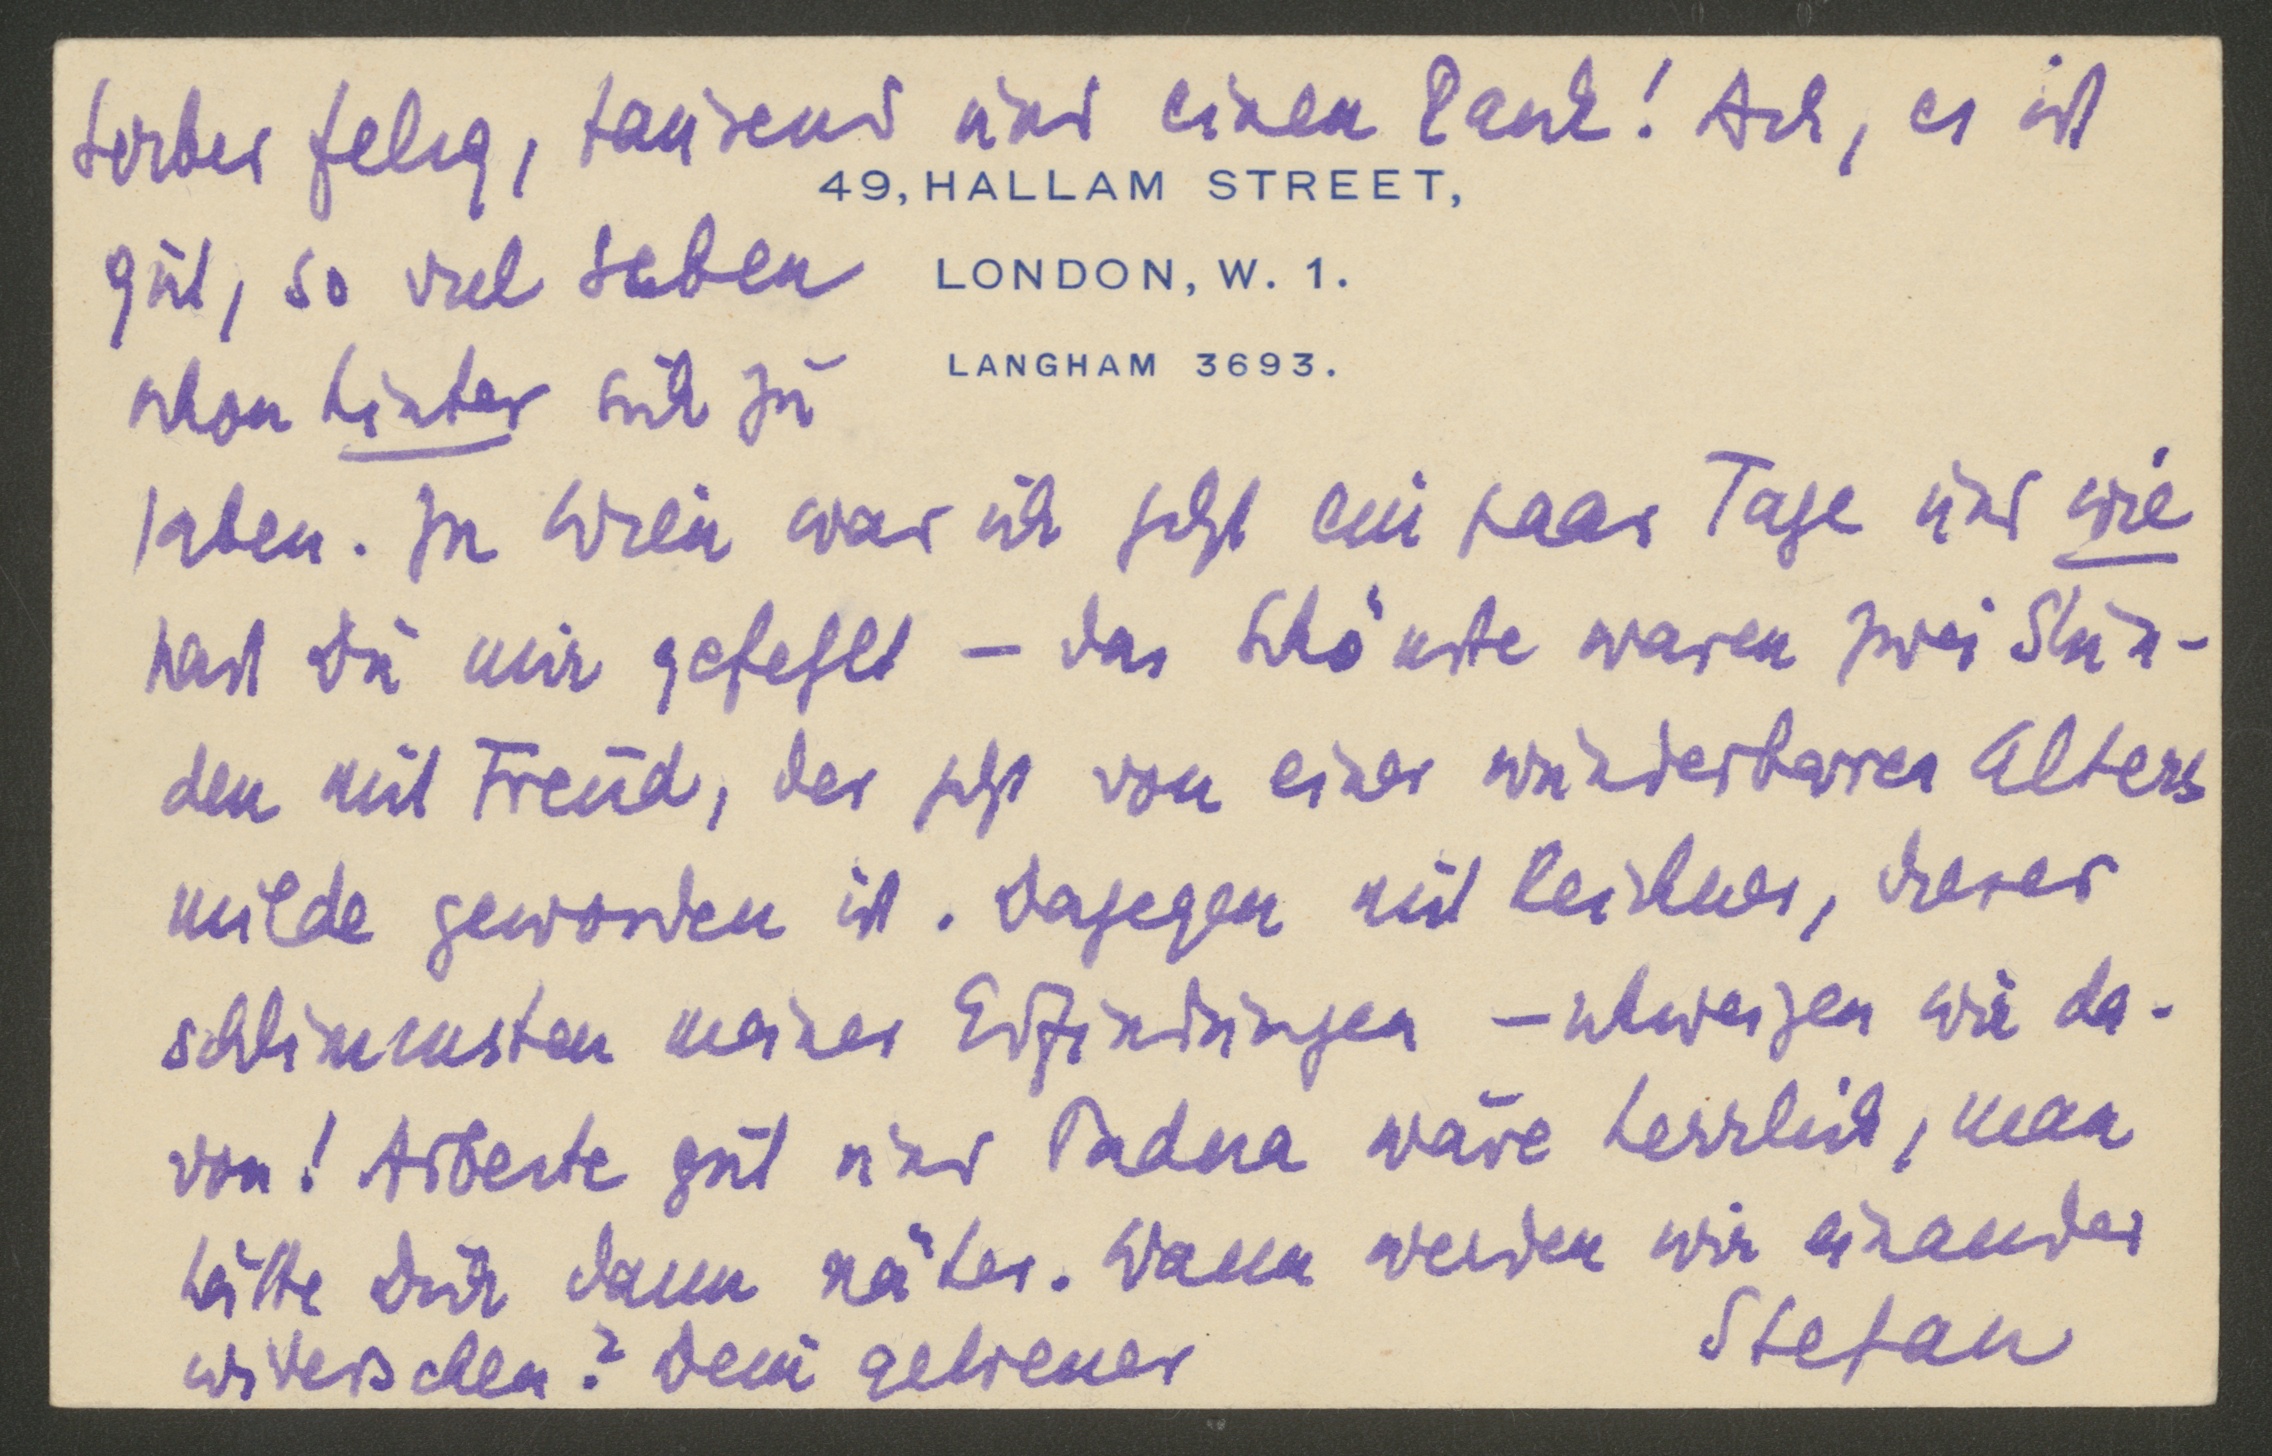 Lieber Felix, tausend und einen Dank! Ach, es ist
49, HALLAM STREET,
gut, so viel Leben
LONDON, W. 1.
schon hinter sich zu
LANGHAM 3693.
haben. In Wien war ich jetzt ein paar Tage und wie
hast Du mir gefehlt – das Schönste waren zwei Stun-
den mit Freud, der jetzt von einer wunderbaren Alters
milde geworden ist. Dagegen mit Reichner, dieser
schlimmsten meiner Erfindungen – schweigen wir da-
von! Arbeite gut und Padua wäre herrlich, man
hätte Dich dann näher. Wann werden wir einander
wiedersehen? Dein getreuer
Stefan